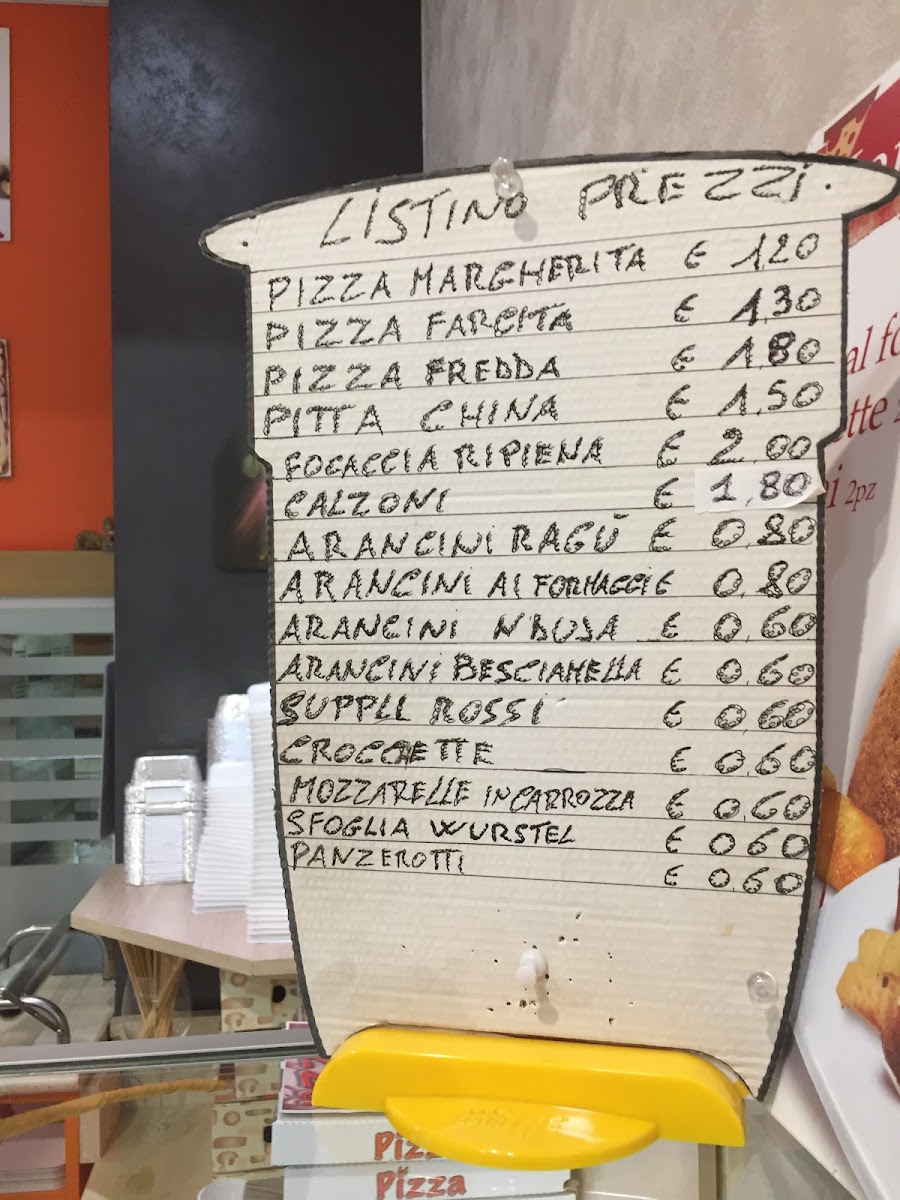 LISTINO PREZZI.
PIZZA MARGHERITA € 1,20
PIZZA FARCITA € 1,30
PIZZA FREDDA € 1,80
PITTA CHINA € 1,50
FOCACCIA RIPIENA € 2,00
CALZONI € 1,80
ARANCINI RAGÙ € 0,80
ARANCINI AI FORMAGGI € 0,80
ARANCINI N'DUJA € 0,60
ARANCINI BESCIAMELLA € 0,60
SUPPLI ROSSI € 0,60
CROCCHETTE € 0,60
MOZZARELLE IN CARROZZA € 0,60
SFOGLIA WURSTEL € 0,60
PANZEROTTI € 0,60
al fo
tte
i 2pz
Pizz
Pizza